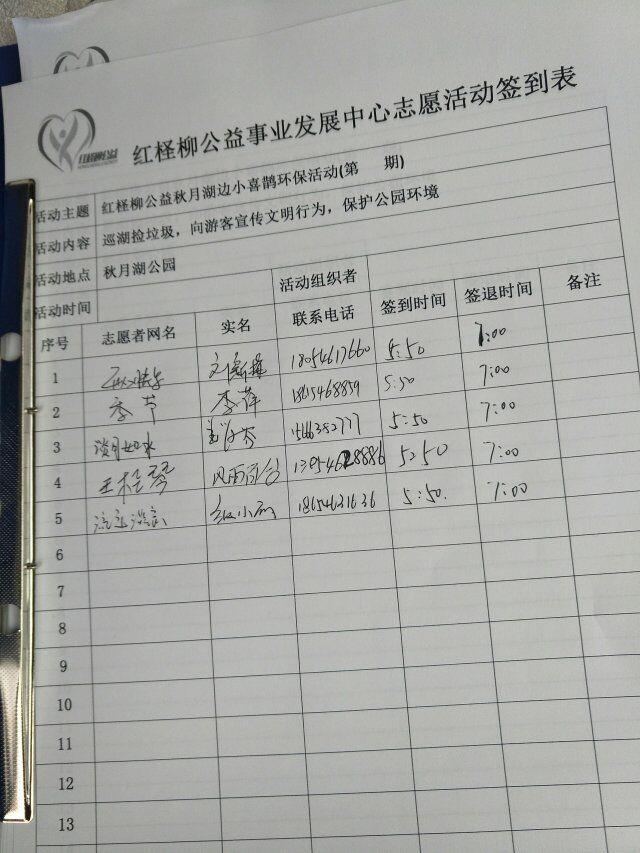 红柽柳公益事业发展中心志愿活动签到表
活动主题 红柽柳公益秋月湖边小喜鹊环保活动(第 期)
活动内容 巡湖捡垃圾，向游客宣传文明行为，保护公园环境
活动地点 秋月湖公园
活动时间 活动组织者
序号 志愿者网名 实名 联系电话 签到时间 签退时间 备注
1 18054617660 5:50 7:00
2 季节 李萍 1865468859 5:50 7:00
3 淡月如水 15666382777 5:50 7:00
4 王桂琴 风雨同舟 13954628886 5:50 7:00
5 18654631636 5:50. 7:00
6
7
8
9
10
11
12
13